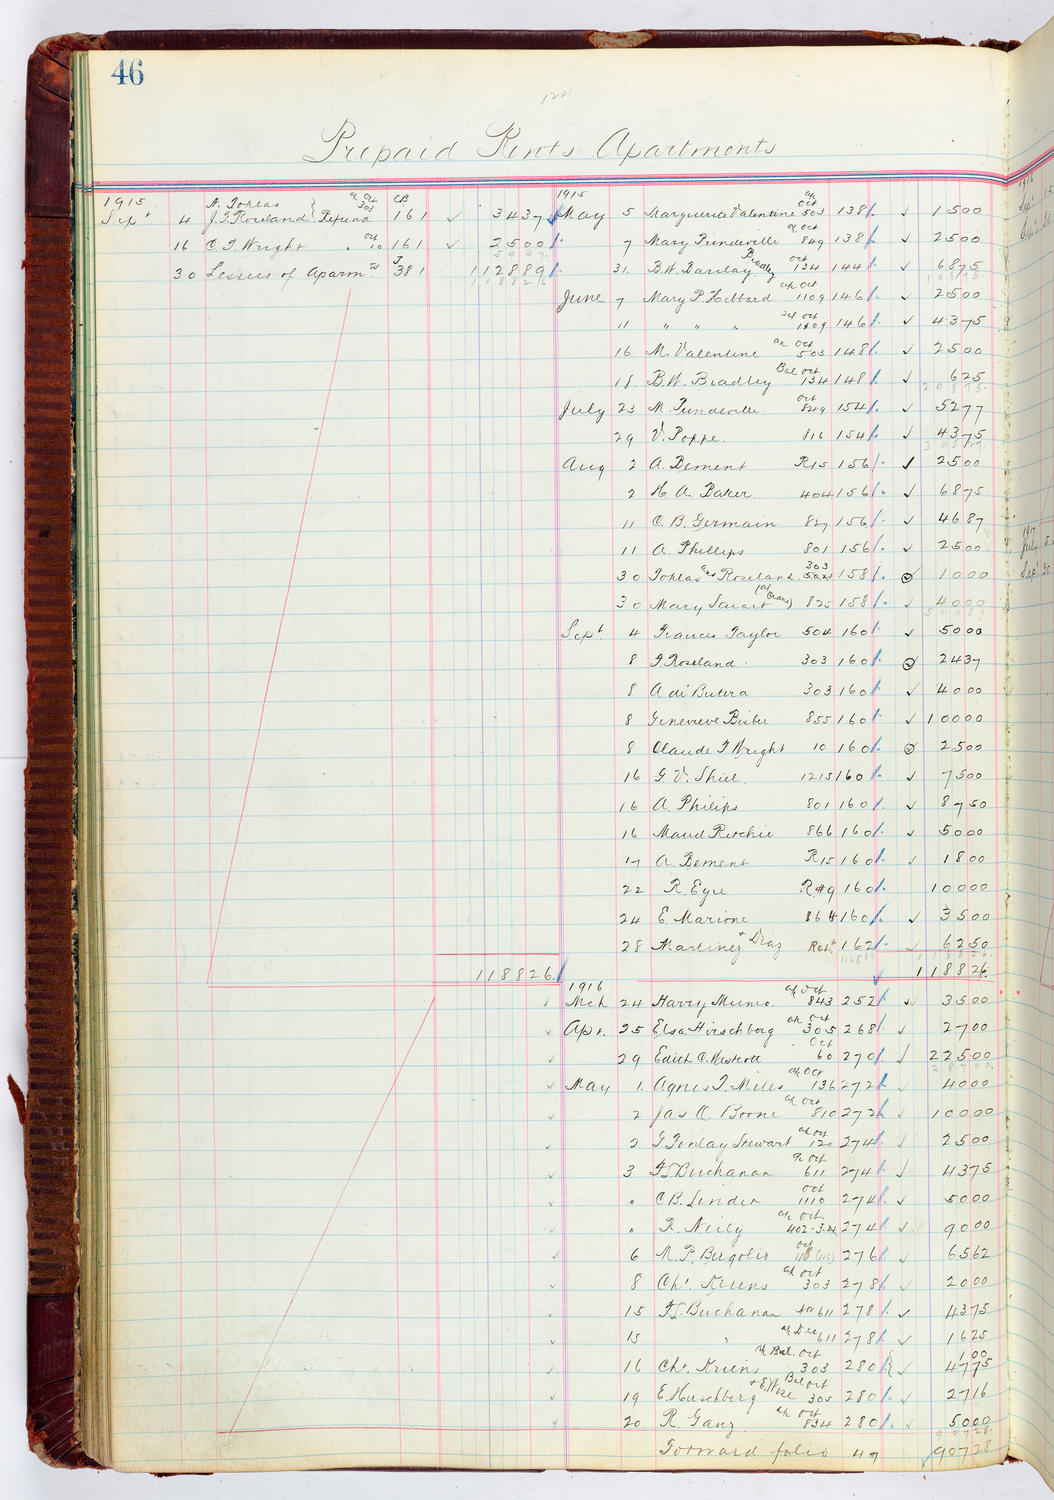 46
124
Prepaid Rents Apartments
1915 N. Tohlas a/c Oct 303 CB
Sept 4 J. F. Roseland } Refund 161 3437
16 C. F. Wright " Oct 10 161 2500
5937
30 Lessees of Aparmts J 381 112889
118826
118826
1915
May 5 Marguerite Valentine Oct 503 138 1500
7 Mary Trundeville a/c Oct 849 138 2500
31 B.W. Barclay Bradley Oct 134 144 6875
10875
June 7 Mary P. Hibbard a/c Oct 1109 146 2500
11 " " " Bal Oct 1109 146 4375
16 M. Valentine a/c Oct 503 148 2500
18 B.W. Bradley Bal Oct 134 148 625
20875
July 23 M. Trundeville Oct 849 154 5277
29 V. Poppe 816 154 4375
Aug 2 A. Bement R15 156 2500
2 H. A. Baker 404 156 6875
11 C. B. Germain 827 156 4687
11 A. Phillips 801 156 2500
30 Tohlas and Roseland 303 158 1000
30 Mary Stuart 825 158 4000
Sept 4 Frances Taylor 504 160 5000
8 F. Roseland 303 160 2437
8 A di Butera 303 160 4000
8 Genevieve Bisbee 855 160 10000
8 Claude F Wright 10 160 2500
16 G. V. Shiel 1215 160 7500
16 A. Philips 801 160 8750
16 Maud Ritchie 866 160 5000
17 A. Bement R15 160 1800
22 R. Eyre R#9 160 10000
24 E. Marione 864 160 3500
28 Martinez + Diaz Rest 162 6250
118826
118826
1916
Mch 24 Harry Munro a/c Oct 843 252 3500
Apr. 25 Elsa Hirschberg a/c Oct 305 268 2700
29 Edith C. Westcott Oct 60 270 22500
28700
May 1 Agnes T. Miles a/c Oct 136 272 4000
2 Jas A Boone a/c Oct 810 272 10000
2 G Finlay Stewart a/c Oct 120 274 2500
3 F. J. Buchanan a/c Oct 611 274 4375
" C B. Linder Oct 1110 274 5000
" R. Neily a/c Oct 402-3-4 274 9000
6 M. P. Bugolis Oct 276 6562
8 Chs. Kriens a/c Oct 303 278 2000
15 F. J. Buchanan Nov 611 278 4375
15 " a/c Dec 611 278 1625
16 Chs. Kriens a/c Bal. Oct 303 280 100 4775
19 E. Hirschberg Bal Oct 305 280 2716
20 R. Ganz a/c Oct 834 280 5000
90728
Forward folio 47 90728